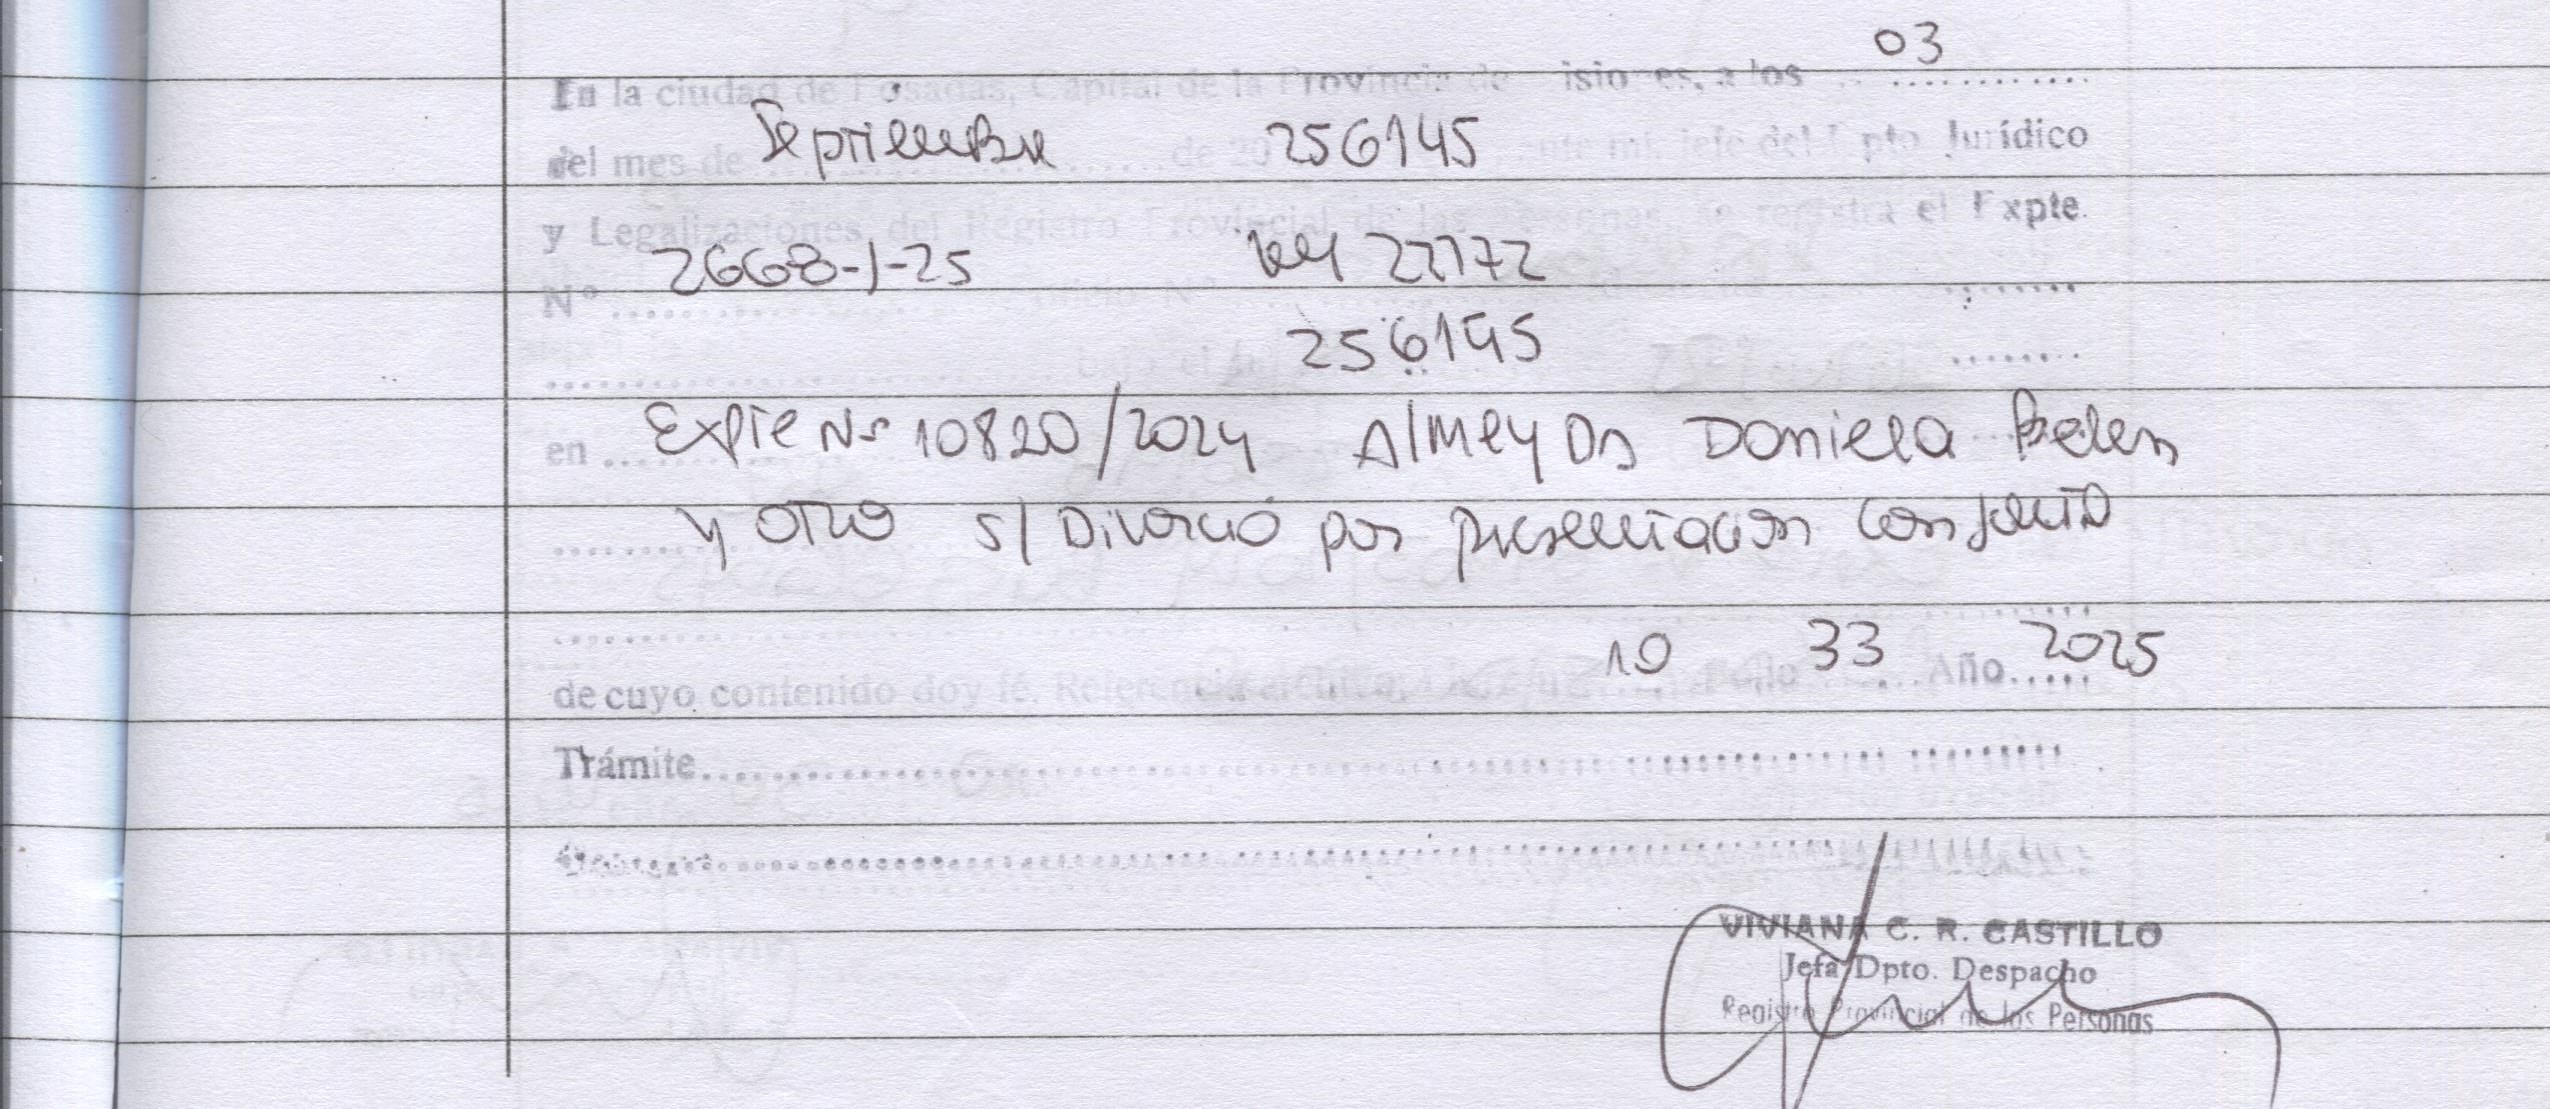 03
En la ciudad de Posadas, Capital de la Provincia de isiones, a los
Septiembre 256145
del mes de de 20 ante mi, jefe del Dpto Jurídico
y Legalizaciones, del Registro Provincial de las Personas, se registra el Expte.
2668-J-25 22172
Nº
256145
bajo el
en Expte Nº 10820/2024 Almeyda Daniela Belen
y otro s/ Divorcio por presentacion conjunta
10 33 2025
de cuyo contenido doy fé. Referencia archivo, Folio Año
Trámite
VIVIANA C. R. CASTILLO
Jefa Dpto. Despacho
Registro Provincial de las Personas